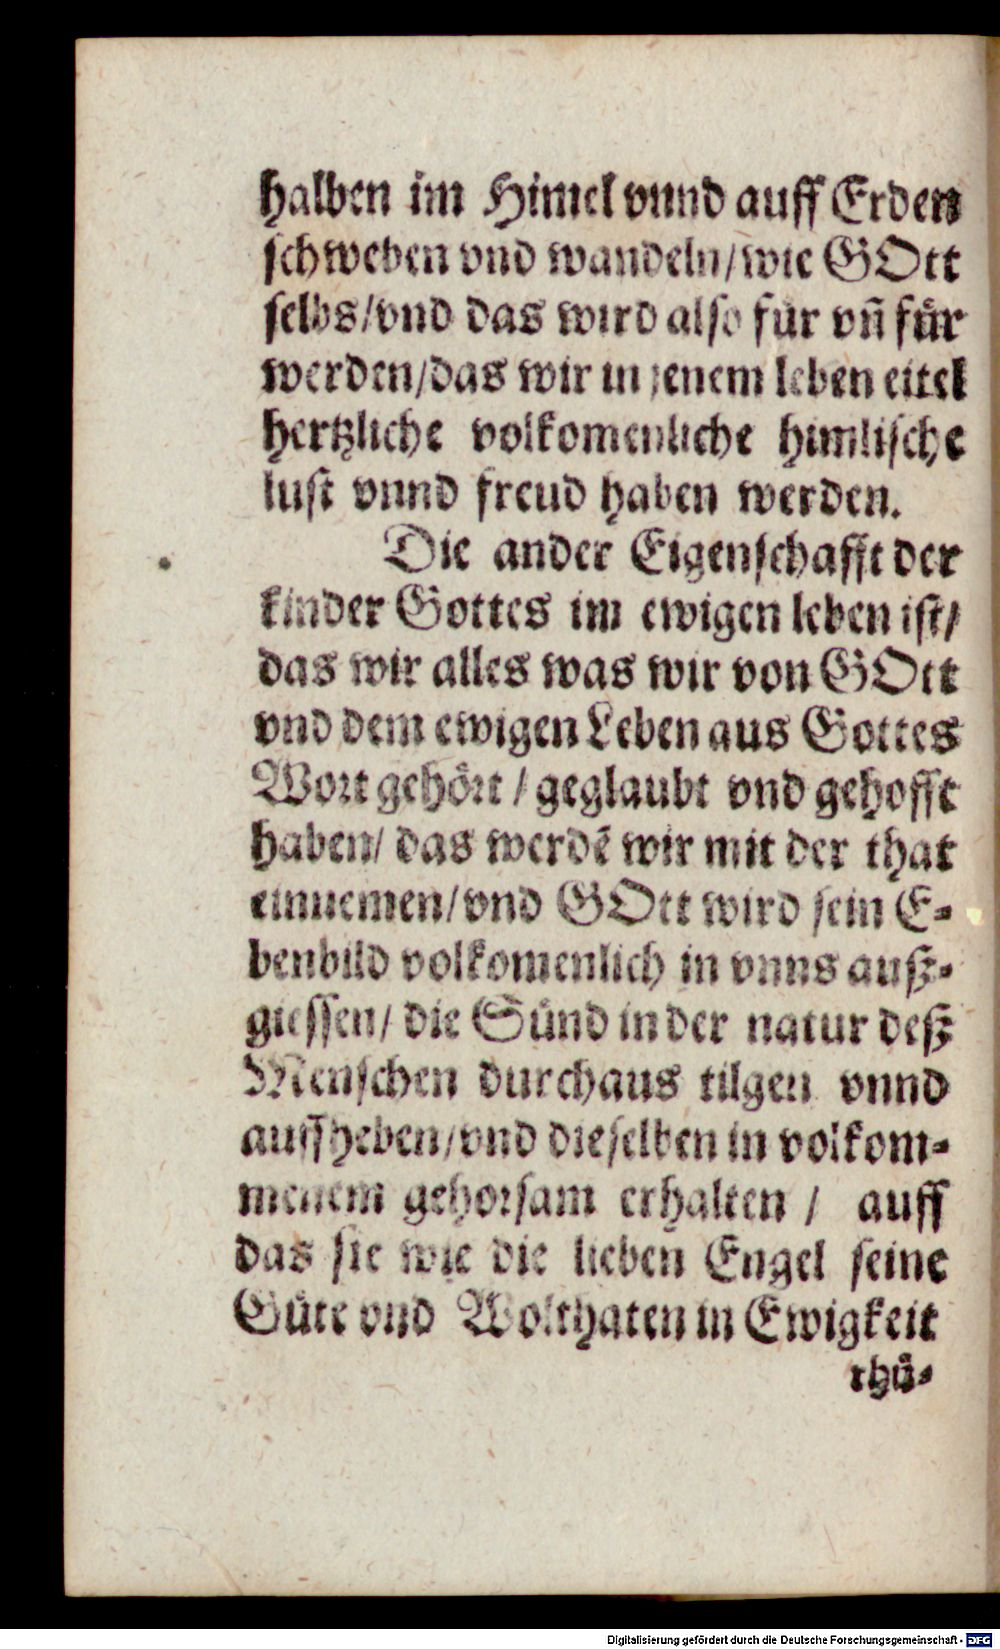 halben im Himel vnnd auff Erden
schweben vnd wandeln/wie GOtt
selbs/vnd das wird also für vñ für
werden/das wir in jenem leben eitel
hertzliche volkomenliche himlische
lust vnnd freud haben werden.
Die ander Eigenschafft der
kinder Gottes im ewigen leben ist/
das wir alles was wir von GOtt
vnd dem ewigen Leben aus Gottes
Wort gehört / geglaubt vnd gehofft
haben/ das werdē wir mit der that
einnemen/vnd GOtt wird sein E-
benbild volkomenlich in vnns auß-
giessen/ die Sünd in der natur deß
Menschen durchaus tilgen vnnd
auffheben/vnd dieselben in volkom-
menem gehorsam erhalten / auff
das sie wie die lieben Engel seine
Güte vnd Wolthaten in Ewigkeit
rhü-
Digitalisierung gefördert durch die Deutsche Forschungsgemeinschaft - DFG